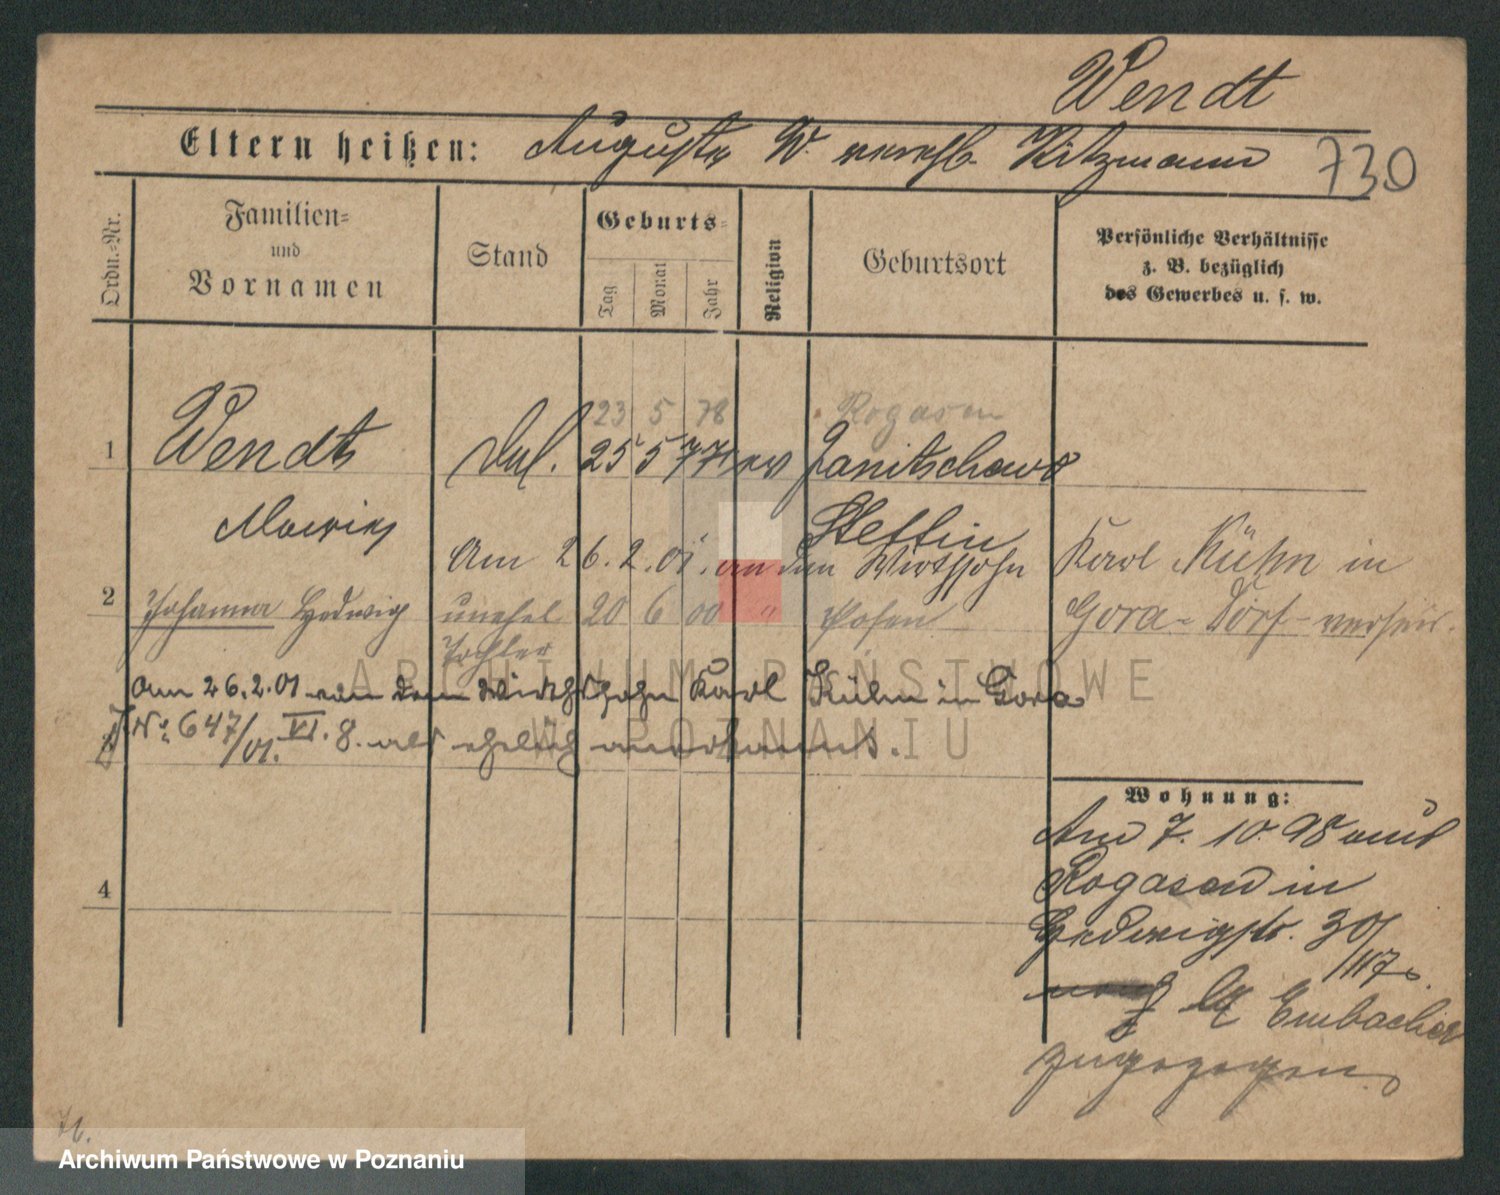 Wendt
Eltern heißen: Auguste W. verehl. Kitzmann
730
Ordn.=Nr.
Familien=
und
Vornamen
Stand
Geburts=
Tag
Monat
Jahr
Religion
Geburtsort
Persönliche Verhältnisse
z. B. bezüglich
des Gewerbes u. s. w.
23 5 78 Rogasen
1 Wendt 25 5 77 ev Janitschows
Marie Stettin
Am 26.2.01. an den Wirthssohn Karl Kühn in
2 Johanna Hedwig unehel 20 6 00 " Posen Gora-Dorf verheir.
Tochter
am 26.2.01 von dem Wirthssohn Karl Kühn in Gora
No 647/01. VI. 8. als ehelich anerkannt.
Wohnung:
Am 7. 10. 98 aus
Rogasen in
Hedwigstr. 30
bei Embacher
zugezogen.
4
ARCHIWUM PAŃSTWOWE
W POZNANIU
Archiwum Państwowe w Poznaniu